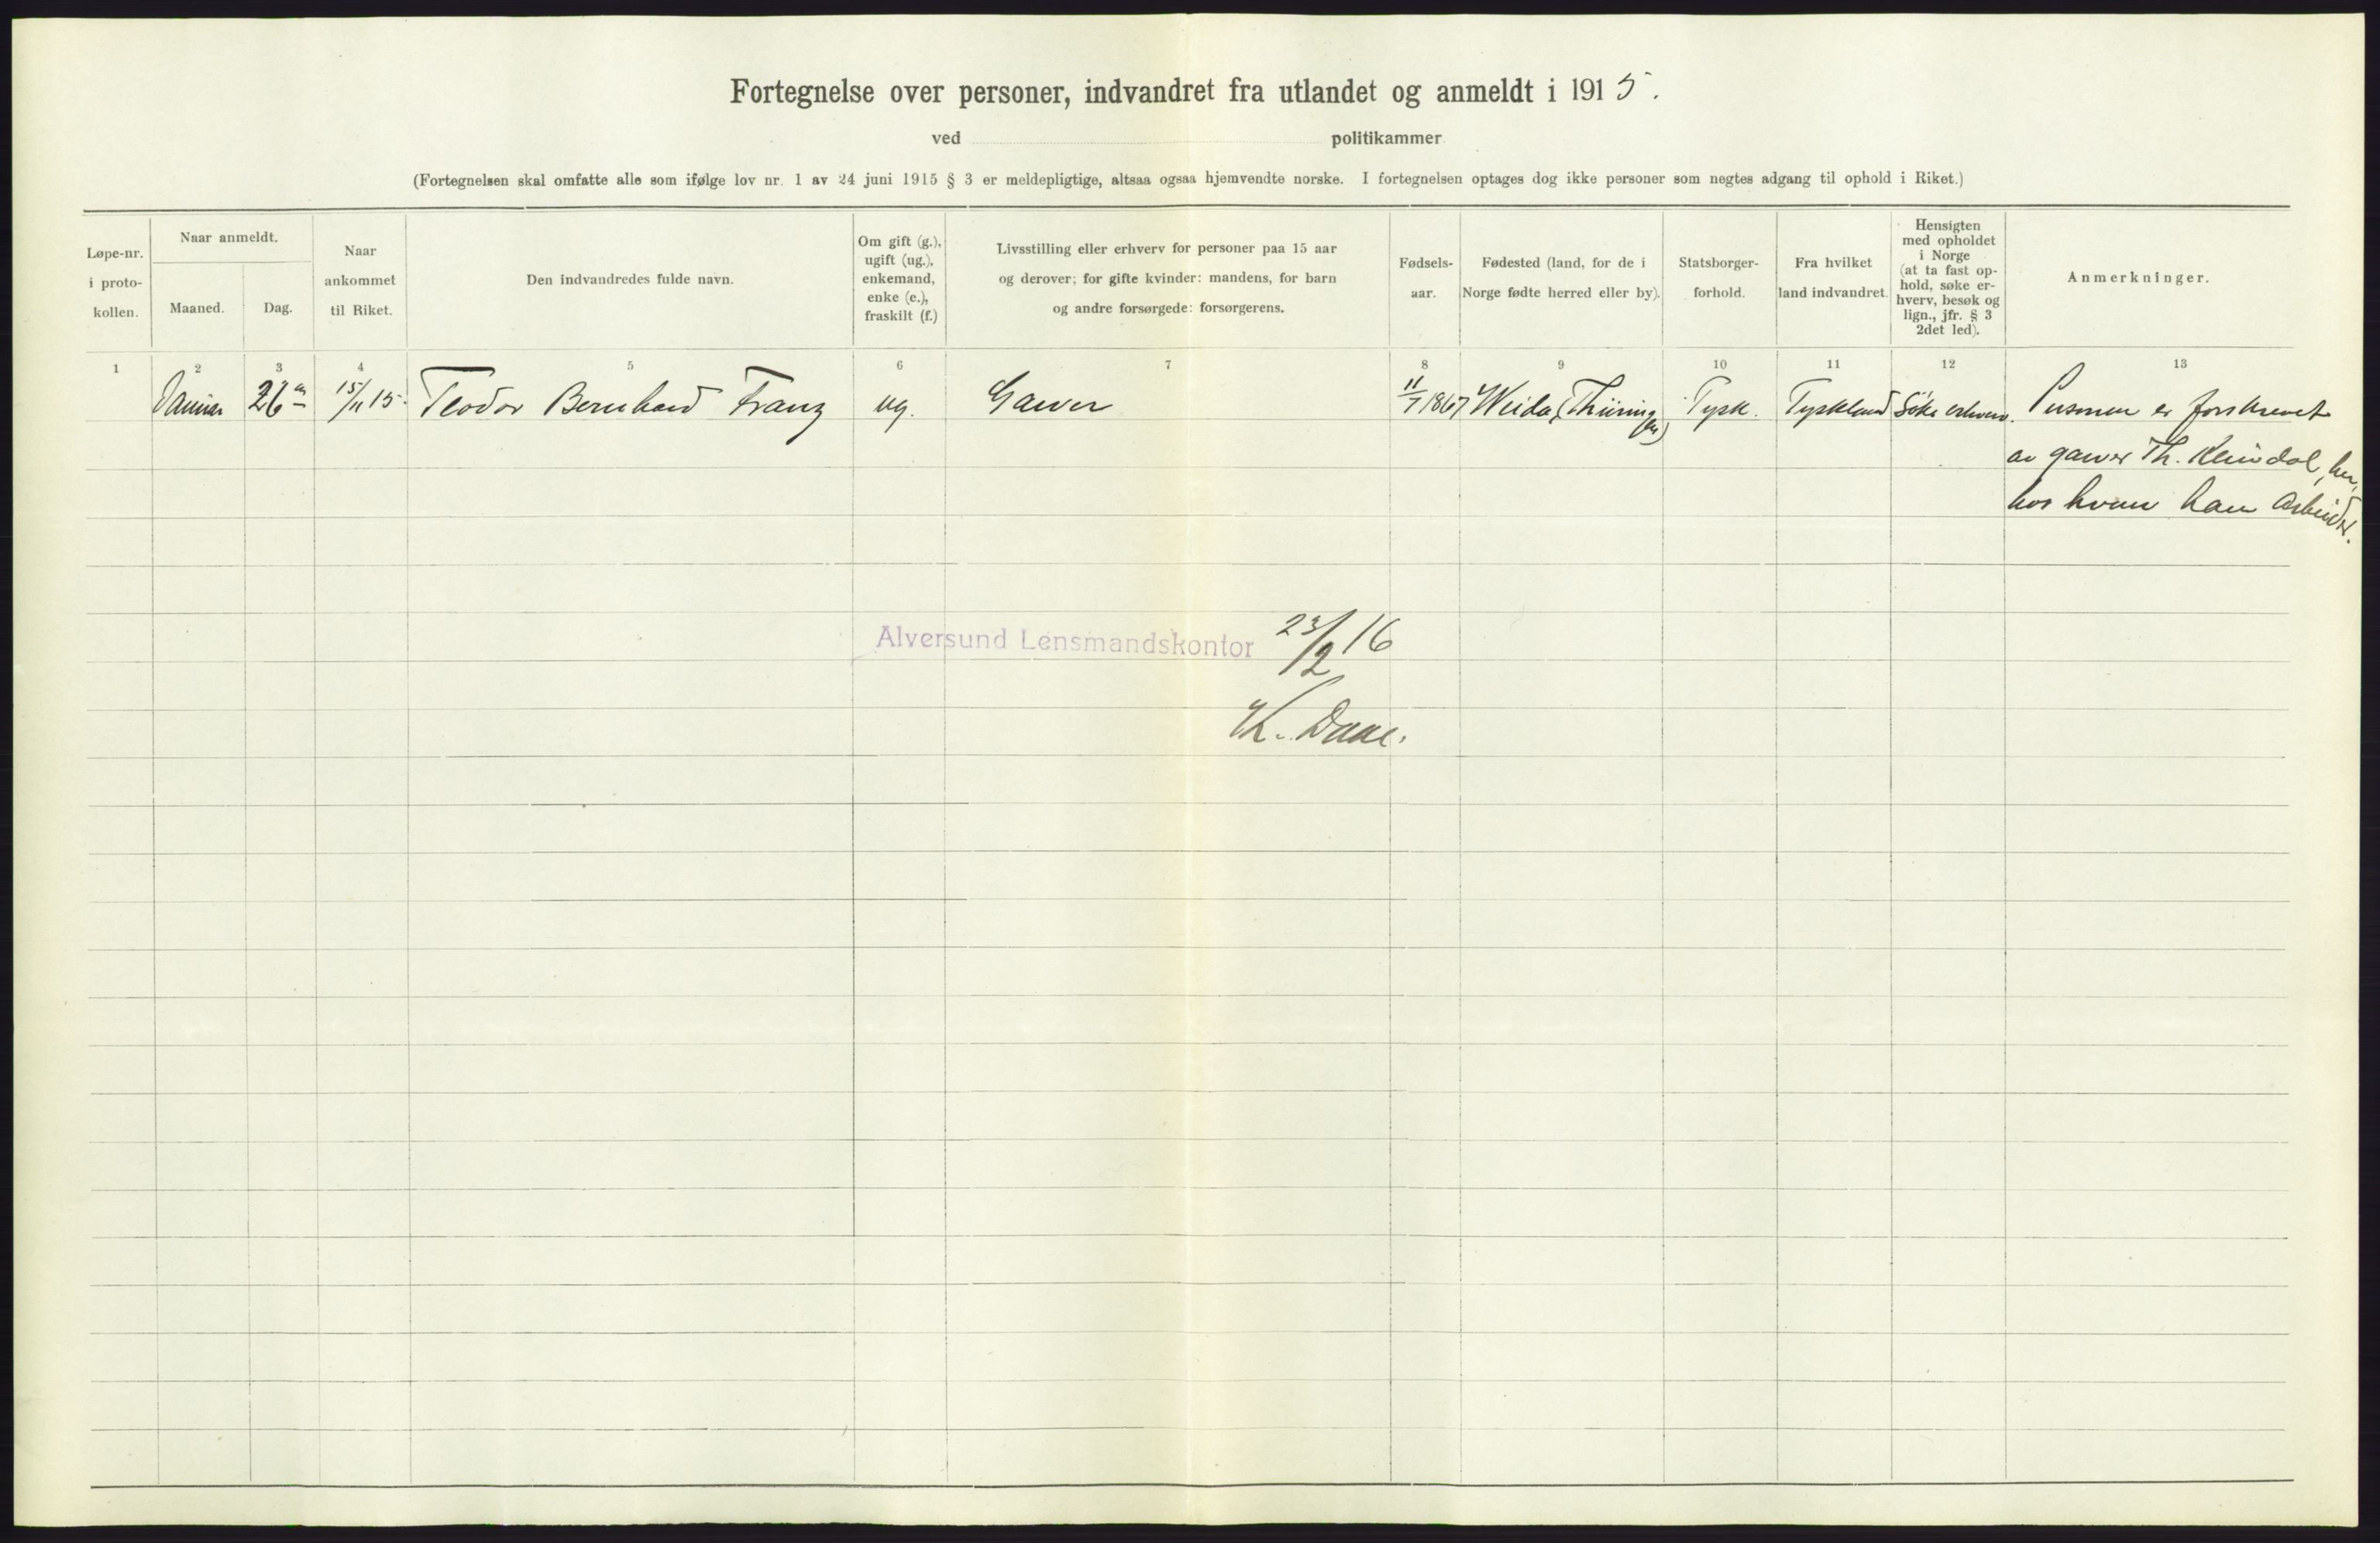 Fortegnelse over personer, indvandret fra utlandet og anmeldt i 1915.
ved politikammer
(Fortegnelsen skal omfatte alle som ifølge lov nr. 1 av 24 juni 1915 § 3 er meldepligtige, altsaa ogsaa hjemvendte norske. I fortegnelsen optages dog ikke personer som negtes adgang til ophold i Riket.)
Løpe-nr.
i proto-
kollen.
Naar anmeldt.
Maaned.
Dag.
Naar
ankommet
til Riket.
Den indvandredes fulde navn.
Om gift (g.),
ugift (ug.),
enkemand,
enke (e.),
fraskilt (f.)
Livsstilling eller erhverv for personer paa 15 aar
og derover; for gifte kvinder: mandens, for barn
og andre forsørgede: forsørgerens.
Fødsels-
aar.
Fødested (land, for de i
Norge fødte herred eller by).
Statsborger-
forhold.
Fra hvilket
land indvandret.
Hensigten
med opholdet
i Norge
(at ta fast op-
hold, søke er-
hverv, besøk og
lign., jfr. § 3
2det led).
Anmerkninger.
1 2 3 4 5 6 7 8 9 10 11 12 13
Januar 26 15/11 15. Teodor Bernhard Franz ug. Garver 11/7 1867 Weida (Thüringen) Tysk. Tyskland Söke erhverv. Personen er forskrevet
av garver Th. Reindal, her,
hos hvem han arbeider.
Alversund Lensmandskontor 23/2 16
K. Daae.